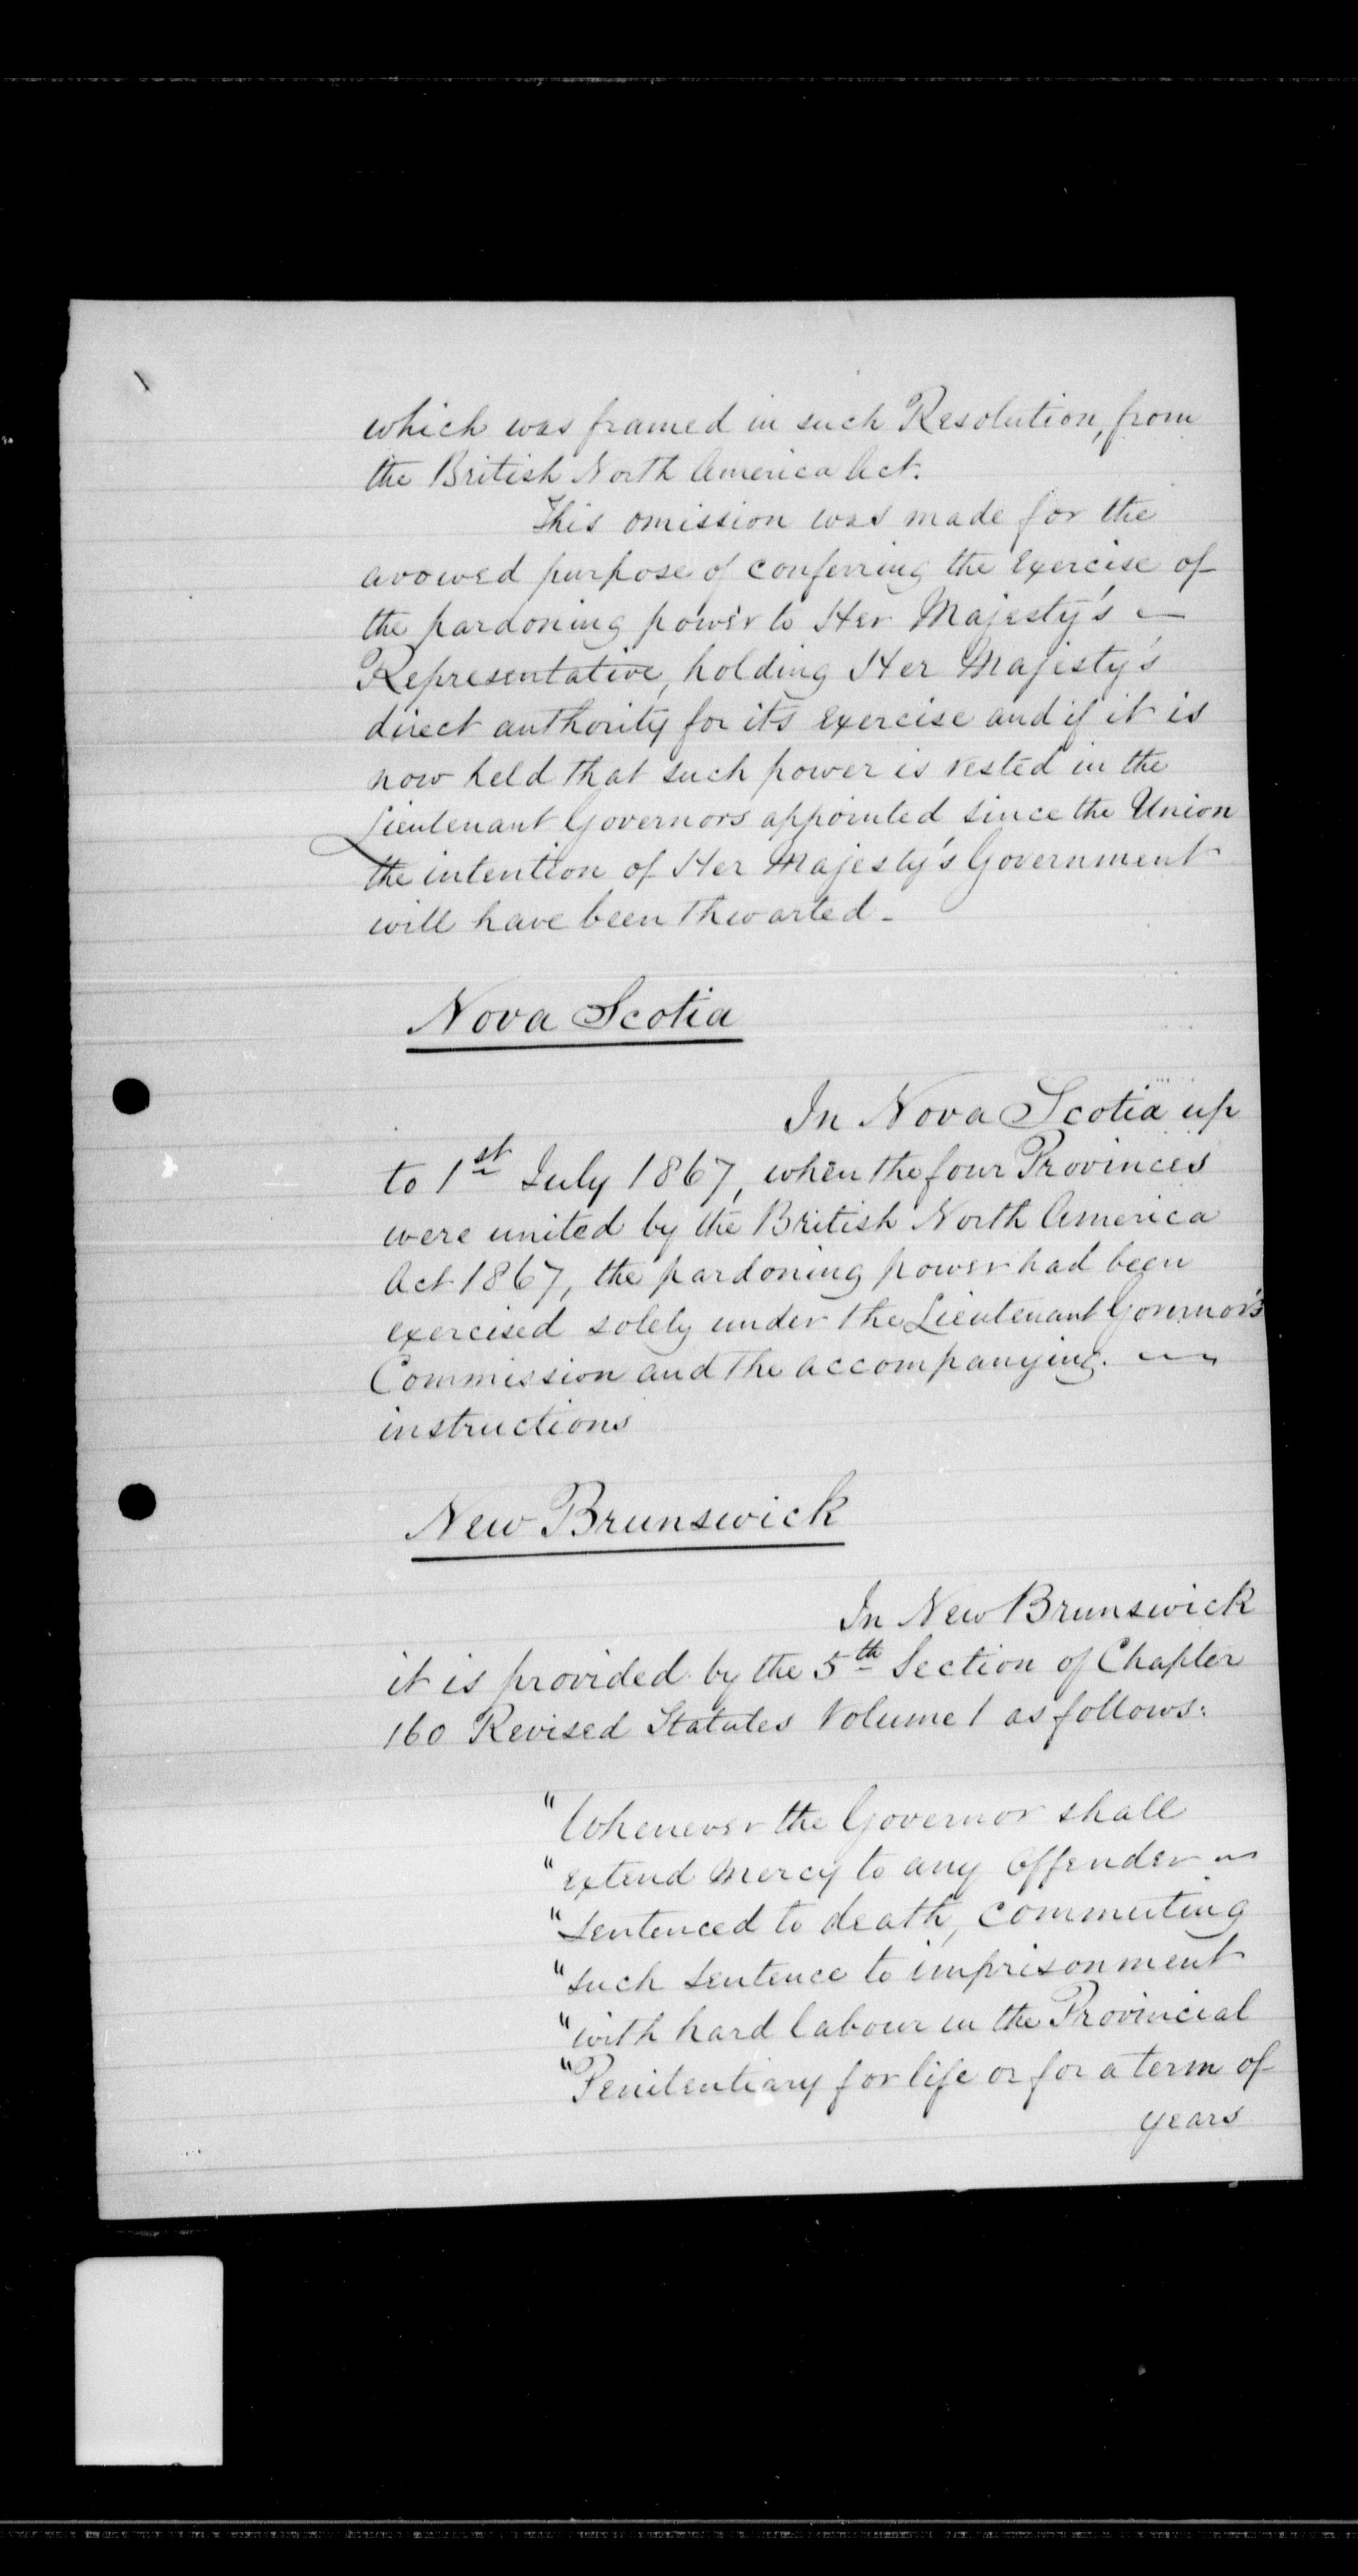 which was framed in such Resolution, from
the British North America Act.
This omission was made for the
avowed purpose of conferring the exercise of
the pardoning power to Her Majesty's —
Representative, holding Her Majesty's
direct authority for its exercise and if it is
now held that such power is vested in the
Lieutenant Governors appointed since the Union
the intention of Her Majesty's Government
will have been thwarted -
Nova Scotia
In Nova Scotia up
to 1st July 1867, when the four Provinces
were united by the British North America
Act 1867, the pardoning power had been
exercised solely under the Lieutenant Governor's
Commission and the accompanying. ~
instructions
New Brunswick
In New Brunswick
it is provided by the 5th Section of Chapter
160 Revised Statutes Volume 1 as follows:
"Whenever the Governor shall
"extend mercy to any offender ~
"sentenced to death, commuting
"such sentence to imprisonment
"with hard labour in the Provincial
"Penitentiary for life or for a term of
years